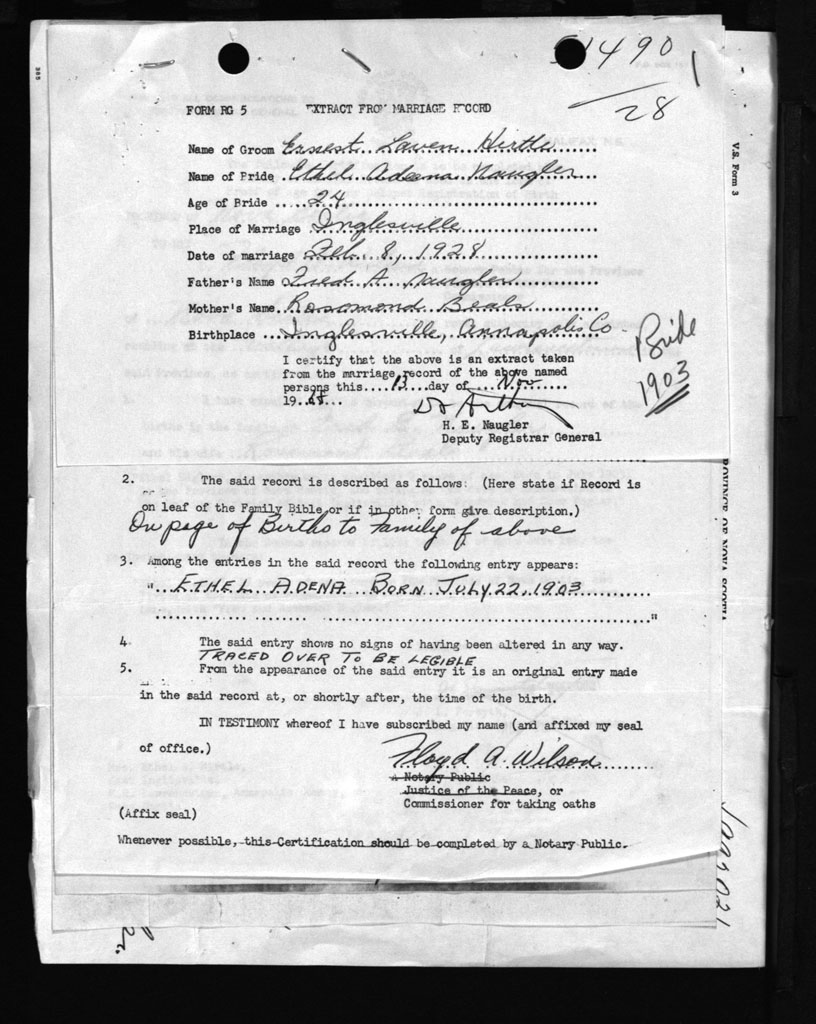 1490
/28
FORM RG 5 EXTRACT FROM MARRIAGE RECORD
Name of Groom Ernest Lawen Hirtle
Name of Bride Ethel Adeena Naugler
Age of Bride ...24
Place of Marriage Inglesville
Date of marriage Feb. 8, 1928
Father's Name Fred A. Naugler
Mother's Name Rosamond Beals
Birthplace ...Inglesville, Annapolis Co
Bride
1903
I certify that the above is an extract taken
from the marriage record of the above named
persons this....13...day of...Nov.....
19.68...
H. E. Naugler
Deputy Registrar General
2. The said record is described as follows: (Here state if Record is
on leaf of the Family Bible or if in other form give description.)
On page of Births to Family of above
3. Among the entries in the said record the following entry appears:
"..ETHEL ADENA BORN JULY 22, 1903
"
4. The said entry shows no signs of having been altered in any way.
TRACED OVER TO BE LEGIBLE
5. From the appearance of the said entry it is an original entry made
in the said record at, or shortly after, the time of the birth.
IN TESTIMONY whereof I have subscribed my name (and affixed my seal
of office.) Floyd A. Wilson
A Notary Public
Justice of the Peace, or
Commissioner for taking oaths
(Affix seal)
Whenever possible, this Certification should be completed by a Notary Public.
V.S. Form 3
PROVINCE OF NOVA SCOTIA
385